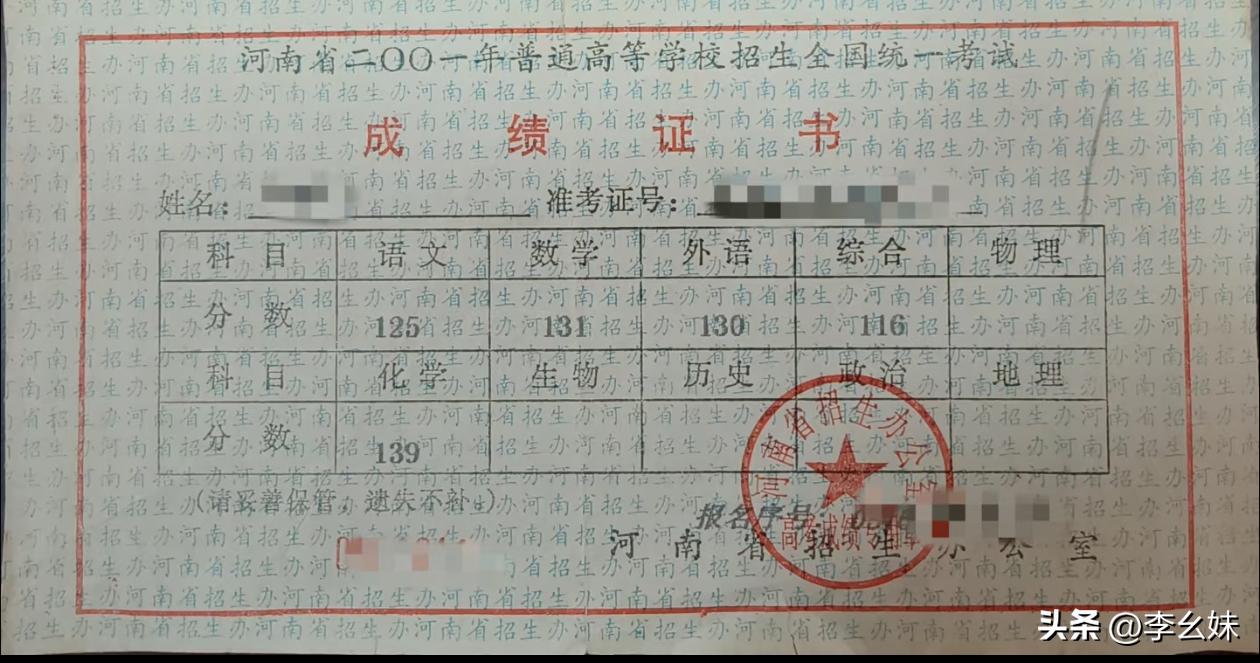 河南省二〇〇一年普通高等学校招生全国统一考试
成绩证书
姓名： 准考证号：
科目 语文 数学 外语 综合 物理
分数 125 131 130 116
科目 化学 生物 历史 政治 地理
分数 139
（请妥善保管，遗失不补。）
报名序号：
河南省招生办公室
河南省招生办公室
头条 @李幺妹